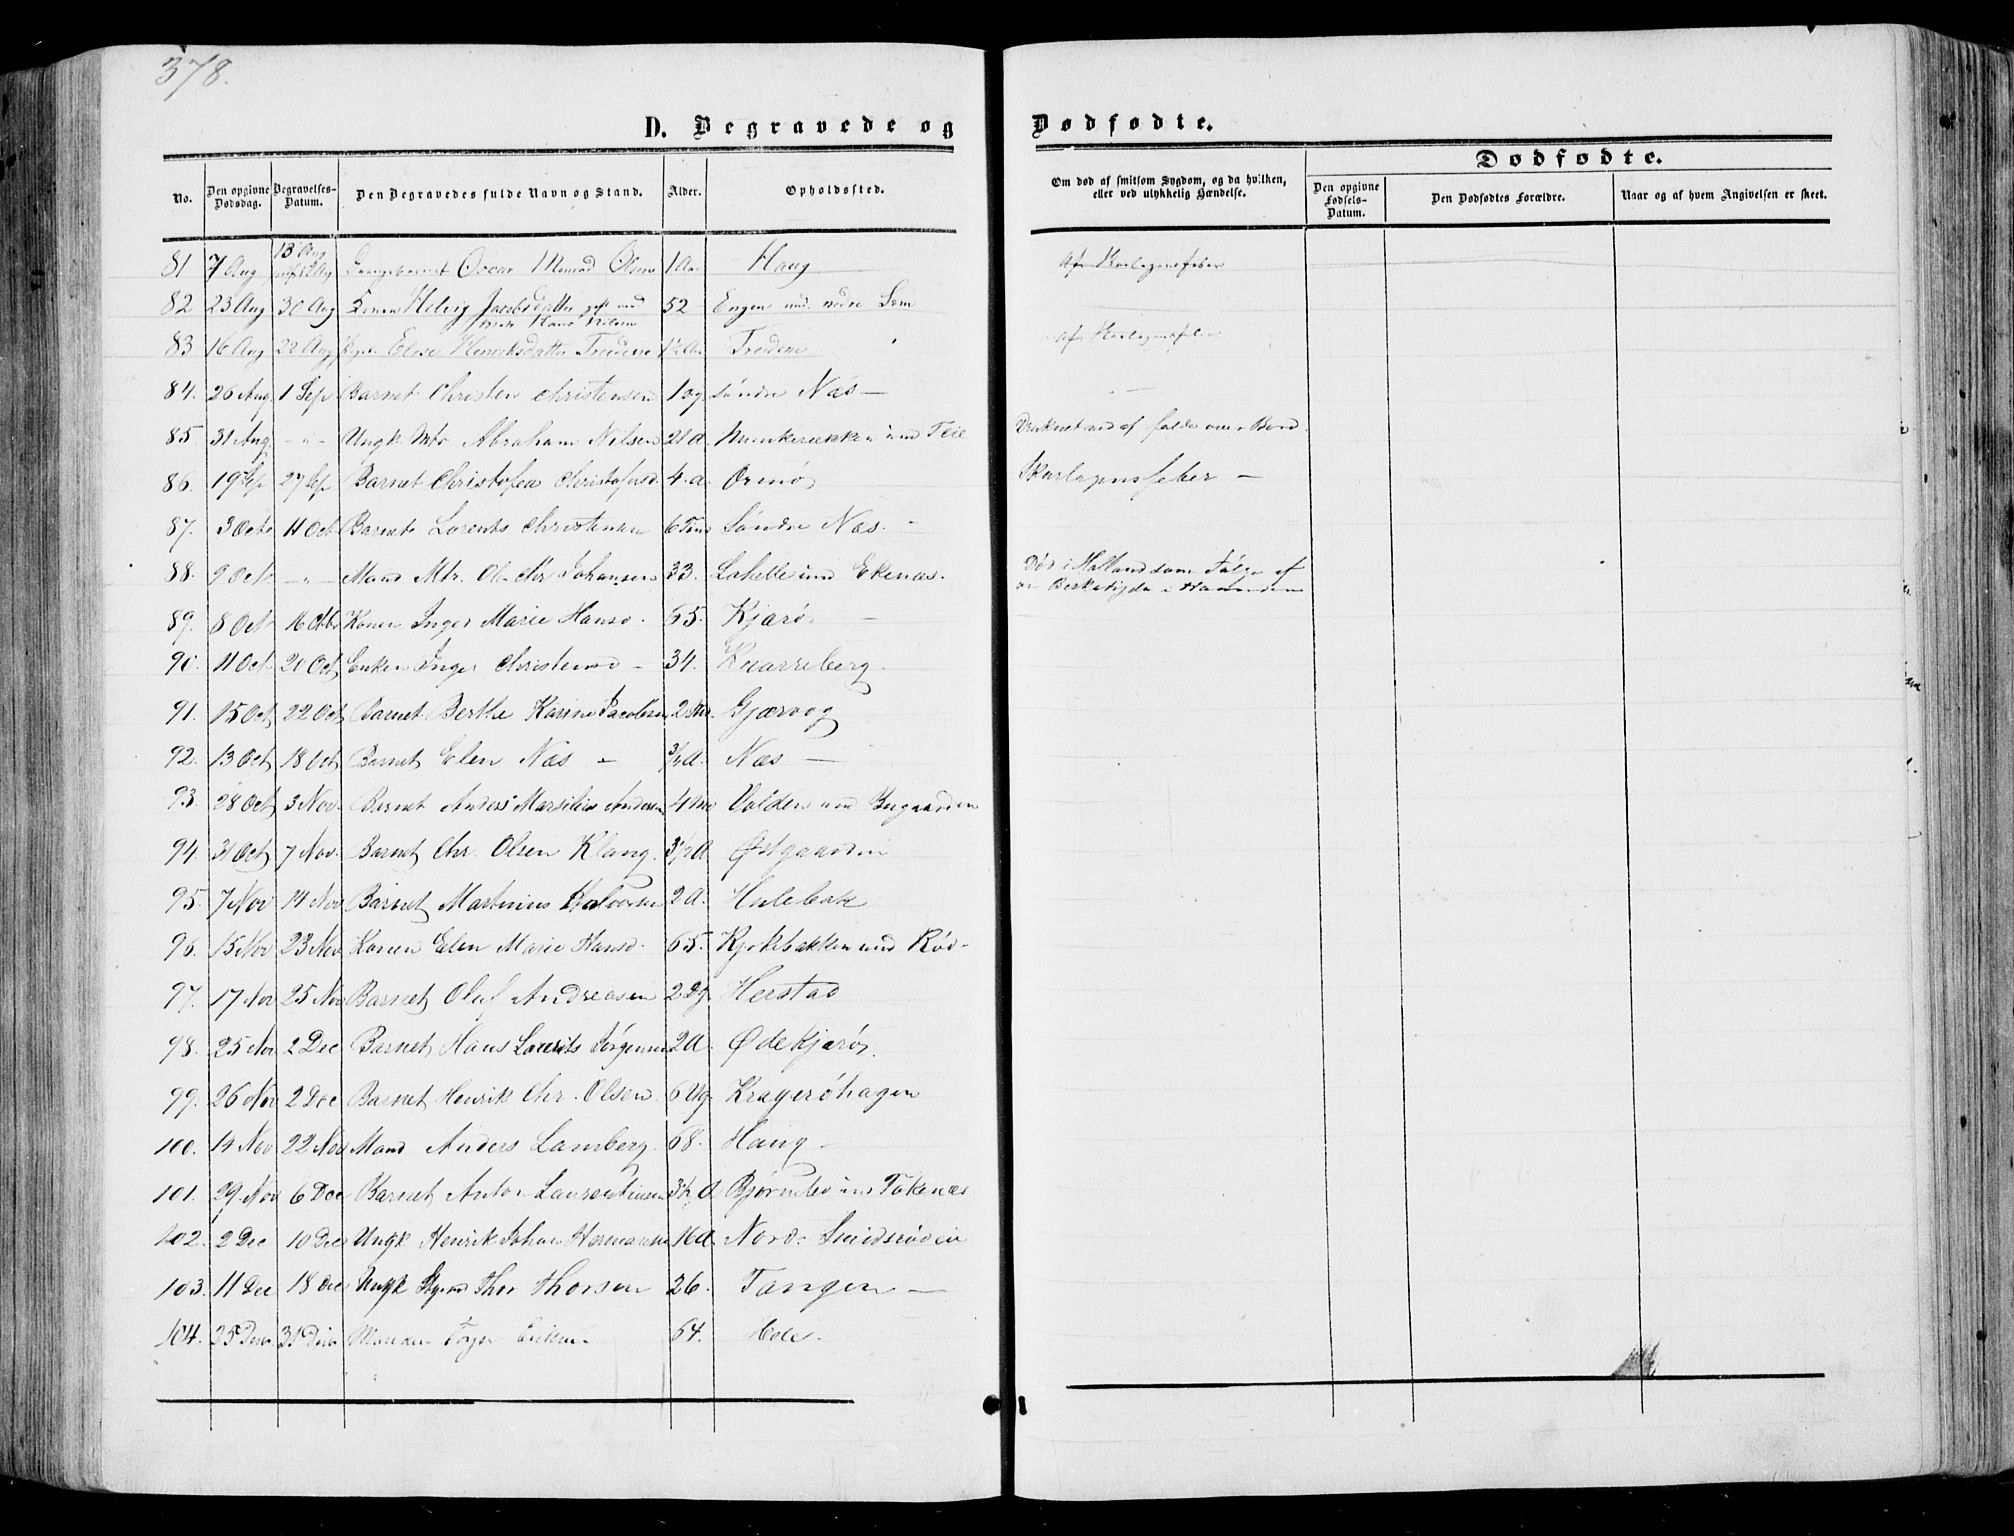 378.
D. Begravede og Dødfødte.
Dødfødte.
No. Den opgivne Dødsdag. Begravelses-Datum. Den Begravedes fulde Navn og Stand. Alder. Opholdssted. Om død af smitsom Sygdom, og da hvilken, eller ved ulykkelig Hændelse. Den opgivne Fødsels-Datum. Den Dødfødtes Forældre. Naar og af hvem Angivelsen er skeet.
81 7 Aug 13 Aug Oscar Olsen 1 Aar Haug af Skarlagensfeber
82 23 Aug 30 Aug Helvig Jacobsdatter gift med Hans Nilsen 52 Engen und. nedre Sem
83 16 Aug 22 Aug Pigen Elise Henriksdatter Tredene 1½ Aar Tredene af Skarlagensfeber
84. 26 Aug. 1 Sep Barnet Christen Christensen 1 Søndre Næs —
85 31 Aug — " — Ungk Mtr Abraham Nilsen 21 A. und Teie Druknet ved at falde over Bord.
86. 19 Sep 27 Sep Barnet Christofa Christofersd 4 a. Ormø Skarlagensfeber —
87. 3 Octo 11 Oct Barnet Lorents Christensen 6 Søndre Næs. —
88. 9 Oct — " — Mand Mtr. Ole Chr Johansen 33. Lahelle und Ekenæs. Død i Holland som Følge af en
89. 8 Oct 16 Oktbr Konen Inger Marie Hansd. 65. Kjærø —
90. 11 Oct 20 Oct Enken Inger Christensd — 34. Knarreberg.
91. 15 Oct 22 Oct Barnet Berthe Karine Jacobsen 2 Gjærvog
92. 13 Oct 18 Oct Barnet Elen Næs — ¾ A. Næs —
93. 28 Oct 3 Nov. Barnet Anders Marsilius Andersen 4 Mo Volden und Bugaarden
94. 31 Oct 7 Nov. Barnet Chr. Olsen Klang. 3½ A Østgaarden
95. 7 Nov 14 Nov Barnet Martinius Halvorsen 2 A. Hulebak
96. 15 Nov 23 Nov Konen Elen Marie Hansd. 65. und Rød —
97. 17 Nov 25 Nov Barnet Oluf Andreasen 2 Dg. Herstad
98. 25 Nov 2 Dec Barnet Hans Laurits Jørgensen 2 A. Ødekjærø.
99. 26 Nov 2 Dec Barnet Henrik Chr. Olsen. 6 Ug. Kragerøhagen
100. 14 Nov 22 Nov Mand Anders Lamberg. 68. Haug —
101. 29 Nov 6 Dec Barnet Anton Laurentiusen 3½ A
102. 2 Dec 10 Dec Ungk Henrik Johan Hermansen 16 A. Nordr Smidsrøden
103. 11 Dec 18 Dec Ungk Thor Thorsen 26. Tangen —
104. 25 Decbr 31 Decbr Manden Eriksen 64. Holes.